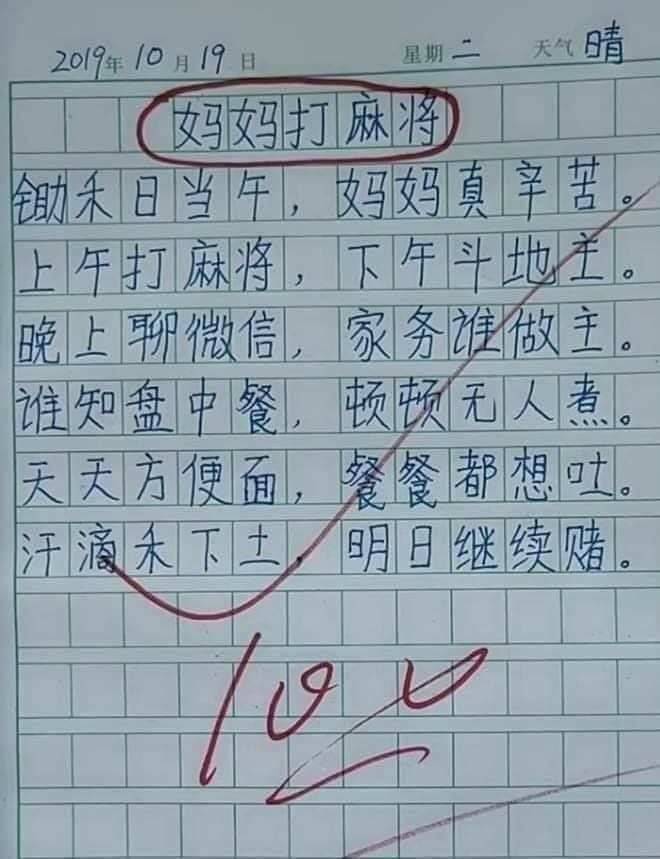 2019年10月19日 星期二 天气晴
妈妈打麻将
锄禾日当午，妈妈真辛苦。
上午打麻将，下午斗地主。
晚上聊微信，家务谁做主。
谁知盘中餐，顿顿无人煮。
天天方便面，餐餐都想吐。
汗滴禾下土，明日继续赌。
100